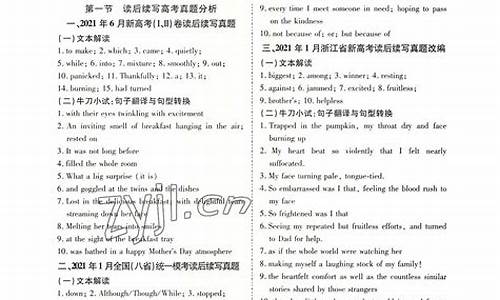 第一节 读后续写高考真题分析
一、2021年6月新高考(I、II)卷读后续写真题
(一)文本解读
1. to make; 2. which; 3. came; 4. quietly;
5. while; 6. into; 7. mixture; 8. smoothly; 9. out;
10. panicked; 11. Thankfully; 12. a; 13. it;
14. burning; 15. had turned
(二)牛刀小试:句子翻译与句型转换
1. with their eyes twinkling with excitement
2. An inviting smell of breakfast hanging in the air;
rested on
3. It was not long before
4. filled the whole room
5. What a big surprise (it is)
6. and goggled at the twins and the dishes
7. Lost in the delicious breakfast, with delightful tears
streaming down her face
8. Melting her tears into smiles
9. at the sight of the breakfast tray
10. was bathed in a happy Mother's Day atmosphere
二、2021年1月全国(八省)统一模考读后续写真题
(一)文本解读
1. down; 2. Although/Though/While; 3. stopped;
9. every time I meet someone in need; hoping to pass
on the kindness
10. not because of; or; but because of
三、2021年1月浙江省新高考读后续写真题改编
(一)文本解读
1. biggest; 2. among; 3. winner; 4. resting;
5. against; 6. jammed; 7. excited; 8. fruitless;
9. brother's; 10. helpless
(二)牛刀小试:句子翻译与句型转换
1. Trapped in the pumpkin, my throat dry and face
burning up
2. My heart beat so violently that I felt nearly
suffocated.
3. My face turning pale, tongue-tied.
4. So embarrassed was I that, feeling the blood rush to
my face
5. So frightened was I that
6. Seeing my repeated but fruitless efforts, and turned
to Dad for help.
7. as if the whole world were watching her
8. making myself a laughing stock of my family!
9. the heartfelt comfort as well as the countless similar
stories shared by those strangers
zyjl.cn